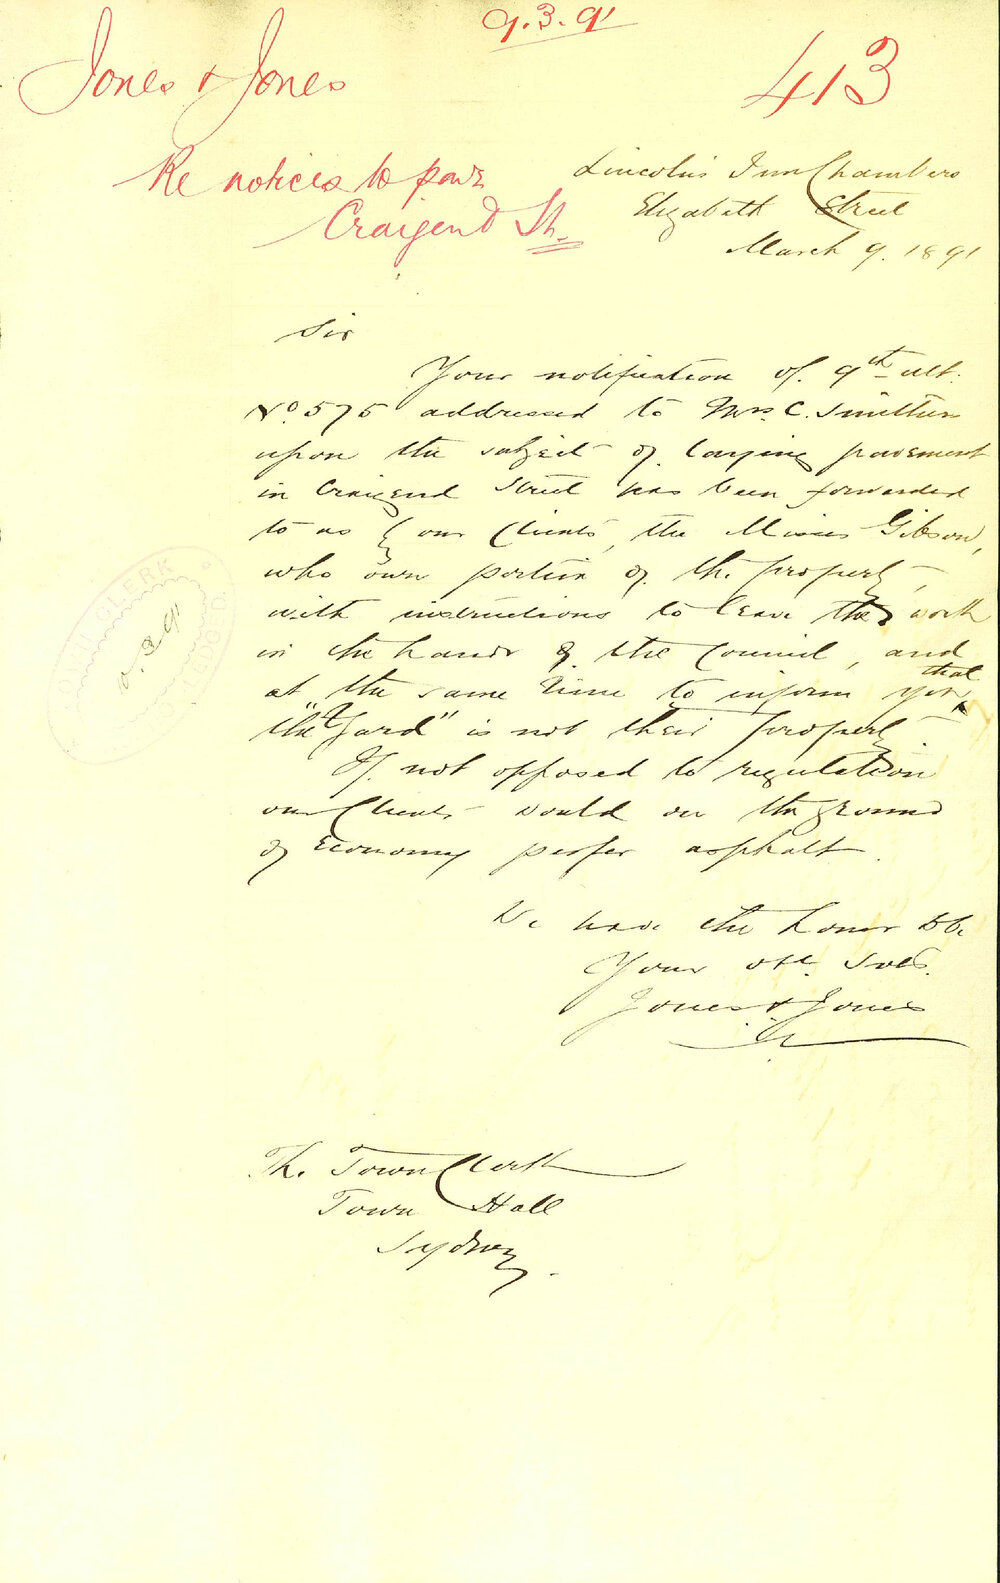 9.3.91
Jones & Jones
413
Re notices to pave
Craigend St.
Lincoln's Inn Chambers
Elizabeth Street
March 9. 1891
Sir
Your notification of 9th ult.
No. 575 addressed to Mrs C.
upon the subject of laying pavement
in Craigend Street has been forwarded
to us by our Clients, the Misses Gibson,
who own portion of the property,
with instructions to leave the work
in the hands of the Council, and
at the same time to inform you that
the "Yard" is not their property
If not opposed to regulation
our Clients would on the ground
of economy prefer asphalt.
We have the honor to be
Your obt. Svts.
Jones & Jones
The Town Clerk
Town Hall
Sydney.